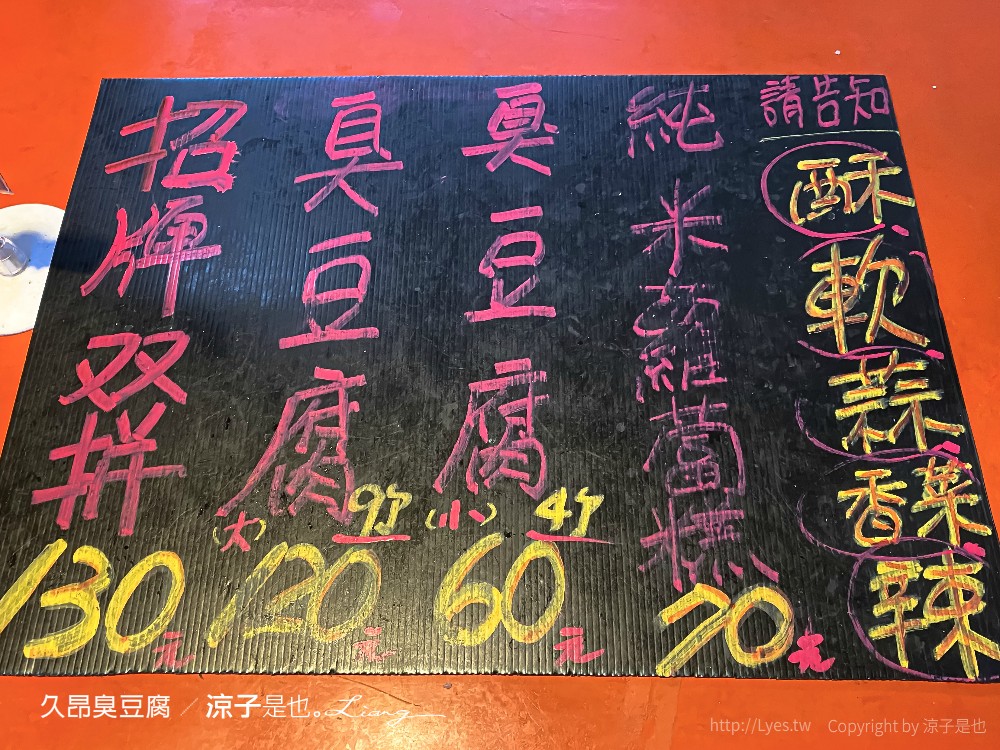 請告知
酥
軟
蒜
香菜
辣
純米蘿蔔糕
70元
臭豆腐
(小) 4ケ
60元
臭豆腐
(大) 9ケ
120元
招牌双拼
130元
久昂臭豆腐 / 涼子是也。Liang
http://Lyes.tw Copyright by 涼子是也